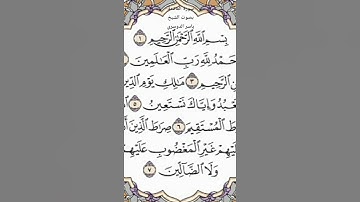 بصوت الشيخ
ياسر الدوسري
بِسْمِ ٱللَّهِ ٱلرَّحْمَٰنِ ٱلرَّحِيمِ ١
حَمْدُ لِلَّهِ رَبِّ ٱلْعَٰلَمِينَ
ٱلرَّحِيمِ ٣ مَٰلِكِ يَوْمِ ٱلدِّي
عْبُدُ وَإِيَّاكَ نَسْتَعِينُ ٥
طَ ٱلْمُسْتَقِيمَ ٦ صِرَٰطَ ٱلَّذِينَ أَ
لَيْهِمْ غَيْرِ ٱلْمَغْضُوبِ عَلَيْهِ
وَلَا ٱلضَّآلِّينَ ٧